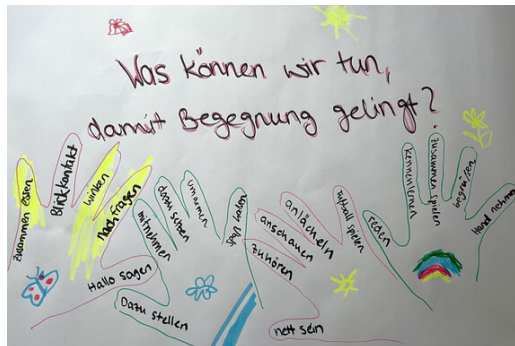 Was können wir tun,
damit Begegnung gelingt?
zusammen essen
Blickkontakt
winken
nachfragen
Hallo sagen
mitnehmen
dazu setzen
umarmen
Spaß haben
Dazu stellen
zuhören
anschauen
anlächeln
Fußball spielen
nett sein
reden
kennenlernen
zusammen spielen
begrüßen
Hand nehmen